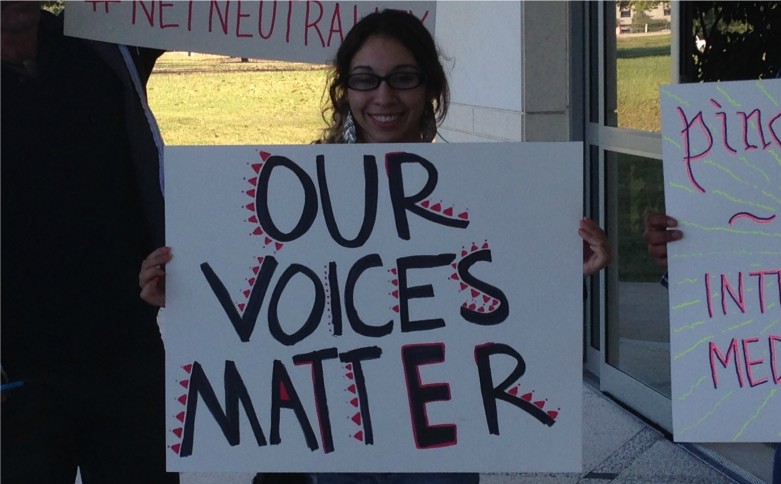 #NETNEUTRALITY
OUR
VOICES
MATTER
INT
MED